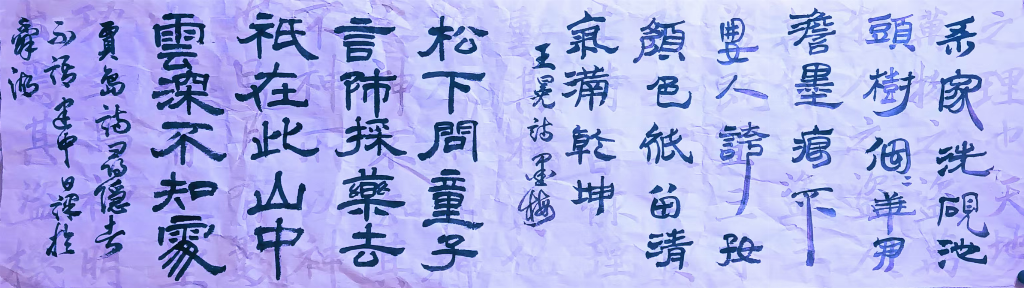 家洗硯池
頭樹個〻華開
澹墨痕不
要人誇好
顏色祇留清
氣滿乾坤
王冕詩墨梅
松下問童子
言師採藥去
祇在此山中
雲深不知處
賈島詩尋隱者
不遇 日課於
舜湖